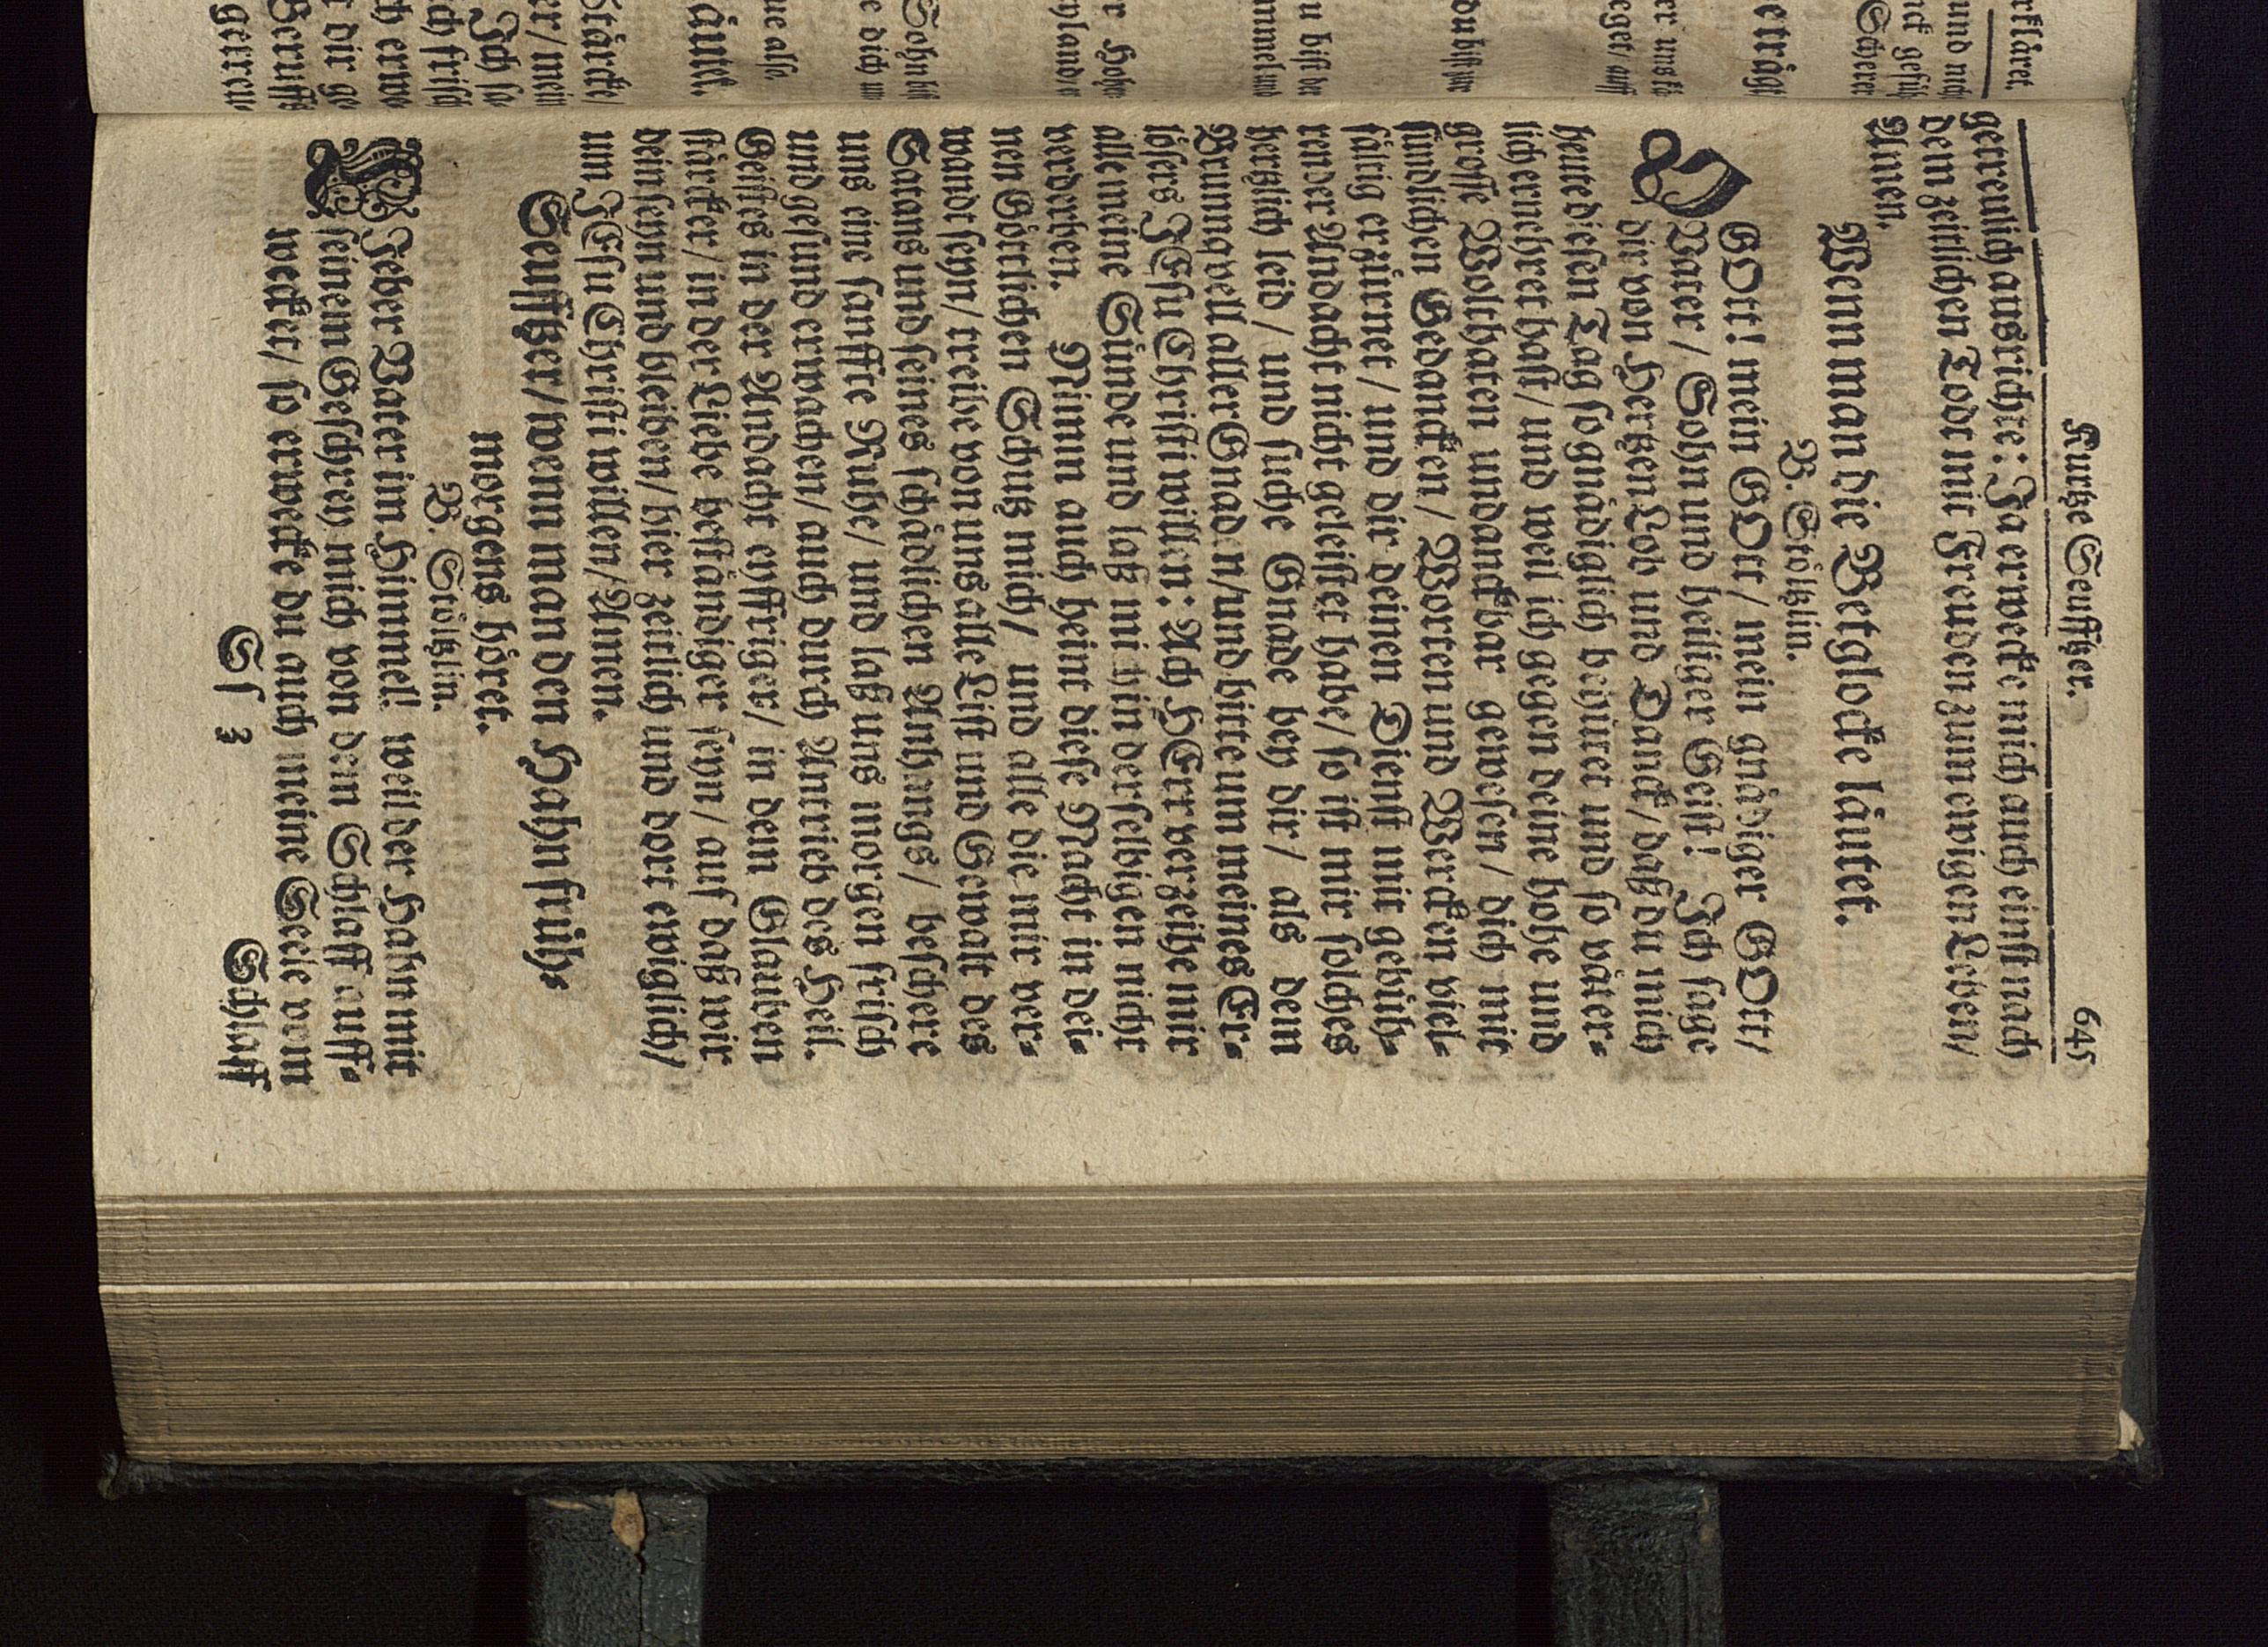 Kurtze Seufftzer. 645
getreulich ausrichte: Ja erwecke mich auch einst nach
dem zeitlichen Tod mit Freuden zum ewigen Leben/
Amen.
Wenn man die Betglocke läutet.
B. Stöltzlin.
O GOtt! mein GOtt/ mein gnädiger GOtt/
Vater/ Sohn und heiliger Geist! Ich sage
dir von Hertzen Lob und Danck/ daß du mich
heute diesen Tag so gnädiglich behütet und so väter-
lich ernehret hast/ und weil ich gegen deine hohe und
grosse Wolthaten undanckbar gewesen/ dich mit
sündlichen Gedancken/ Worten und Wercken viel-
fältig erzürnet/ und dir deinen Dienst mit gebüh-
render Andacht nicht geleistet habe/ so ist mir solches
hertzlich leid/ und suche Gnade bey dir/ als dem
Brunnquell aller Gnaden/ und bitte um meines Er-
lösers JEsu Christi willen: Ach HErr verzeihe mir
alle meine Sünde und laß mi hin derselbigen nicht
verderben. Nimm auch heint diese Nacht in dei-
nen Göttlichen Schutz mich/ und alle die mir ver-
wandt seyn/ treibe von uns alle List und Gewalt des
Satans und seines schädlichen Anhangs/ beschere
uns eine sanffte Ruhe/ und laß uns morgen frisch
und gesund erwachen/ auch durch Antrieb des Heil.
Geistes in der Andacht eyffriger/ in dem Glauben
stärcker/ in der Liebe beständiger seyn/ auf daß wir
dein seyn und bleiben/ hier zeitlich und dort ewiglich/
um JEsu Christi willen/ Amen.
Seufftzer/ wenn man den Hahn früh-
morgens höret.
B. Stöltzlin.
LJeber Vater im Himmel! weil der Hahn mit
seinem Geschrey mich von dem Schlaff auff-
wecket/ so erwecke du auch meine Seele vom
Sf 3 Schlaff